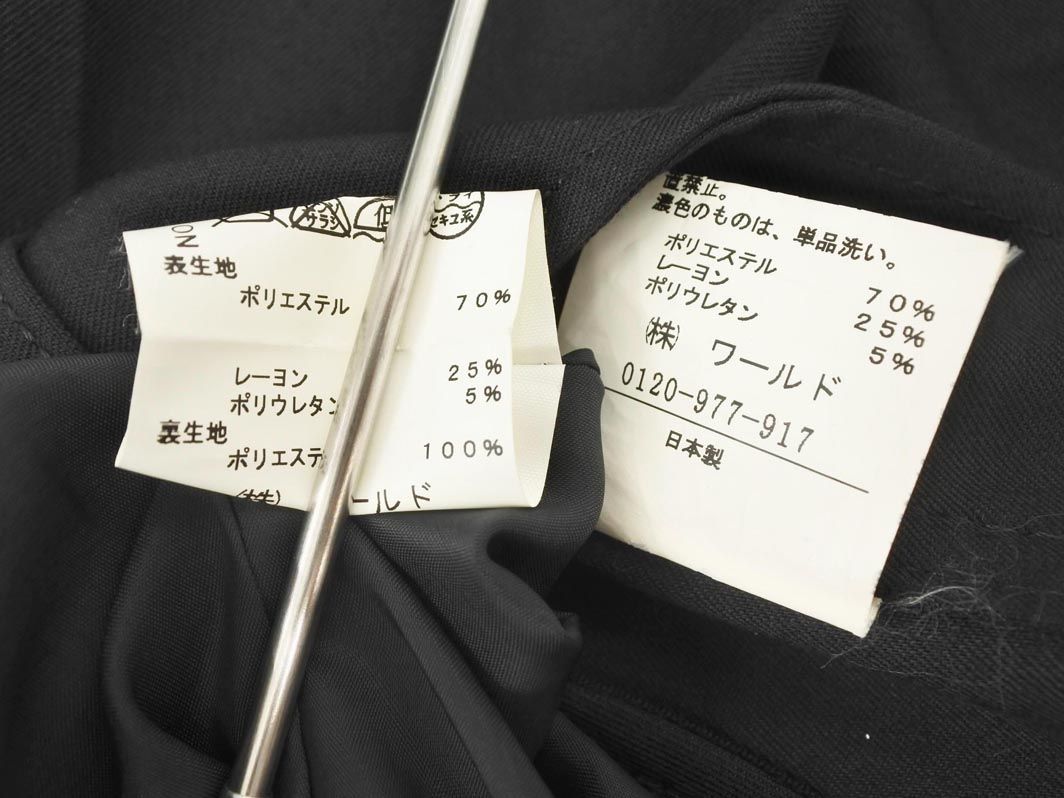 サラシ
低
セキユ系
NO
表生地
ポリエステル 70%
レーヨン 25%
ポリウレタン 5%
裏生地
ポリエステ 100%
(株) ールド
直禁止。
濃色のものは、単品洗い。
ポリエステル 70%
レーヨン 25%
ポリウレタン 5%
(株) ワールド
0120-977-917
日本製